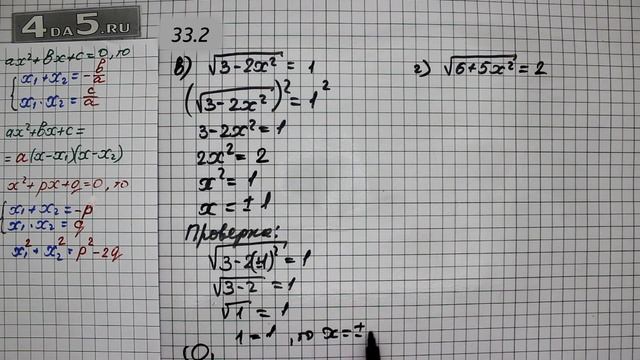 4ДА5.RU
ax²+bx+c=0, то
{ x₁+x₂=-b/a
x₁·x₂=c/a
ax²+bx+c=
=a(x-x₁)(x-x₂)
x²+px+q=0, то
{ x₁+x₂=-p
x₁·x₂=q
x₁²+x₂²=p²-2q
33.2
в) √(3-2x²) = 1
(√(3-2x²))² = 1²
3-2x²=1
2x²=2
x²=1
x=±1
Проверка:
√(3-2(±1)²) = 1
√(3-2) = 1
√1 = 1
1=1, то x=±
г) √(6+5x²) = 2